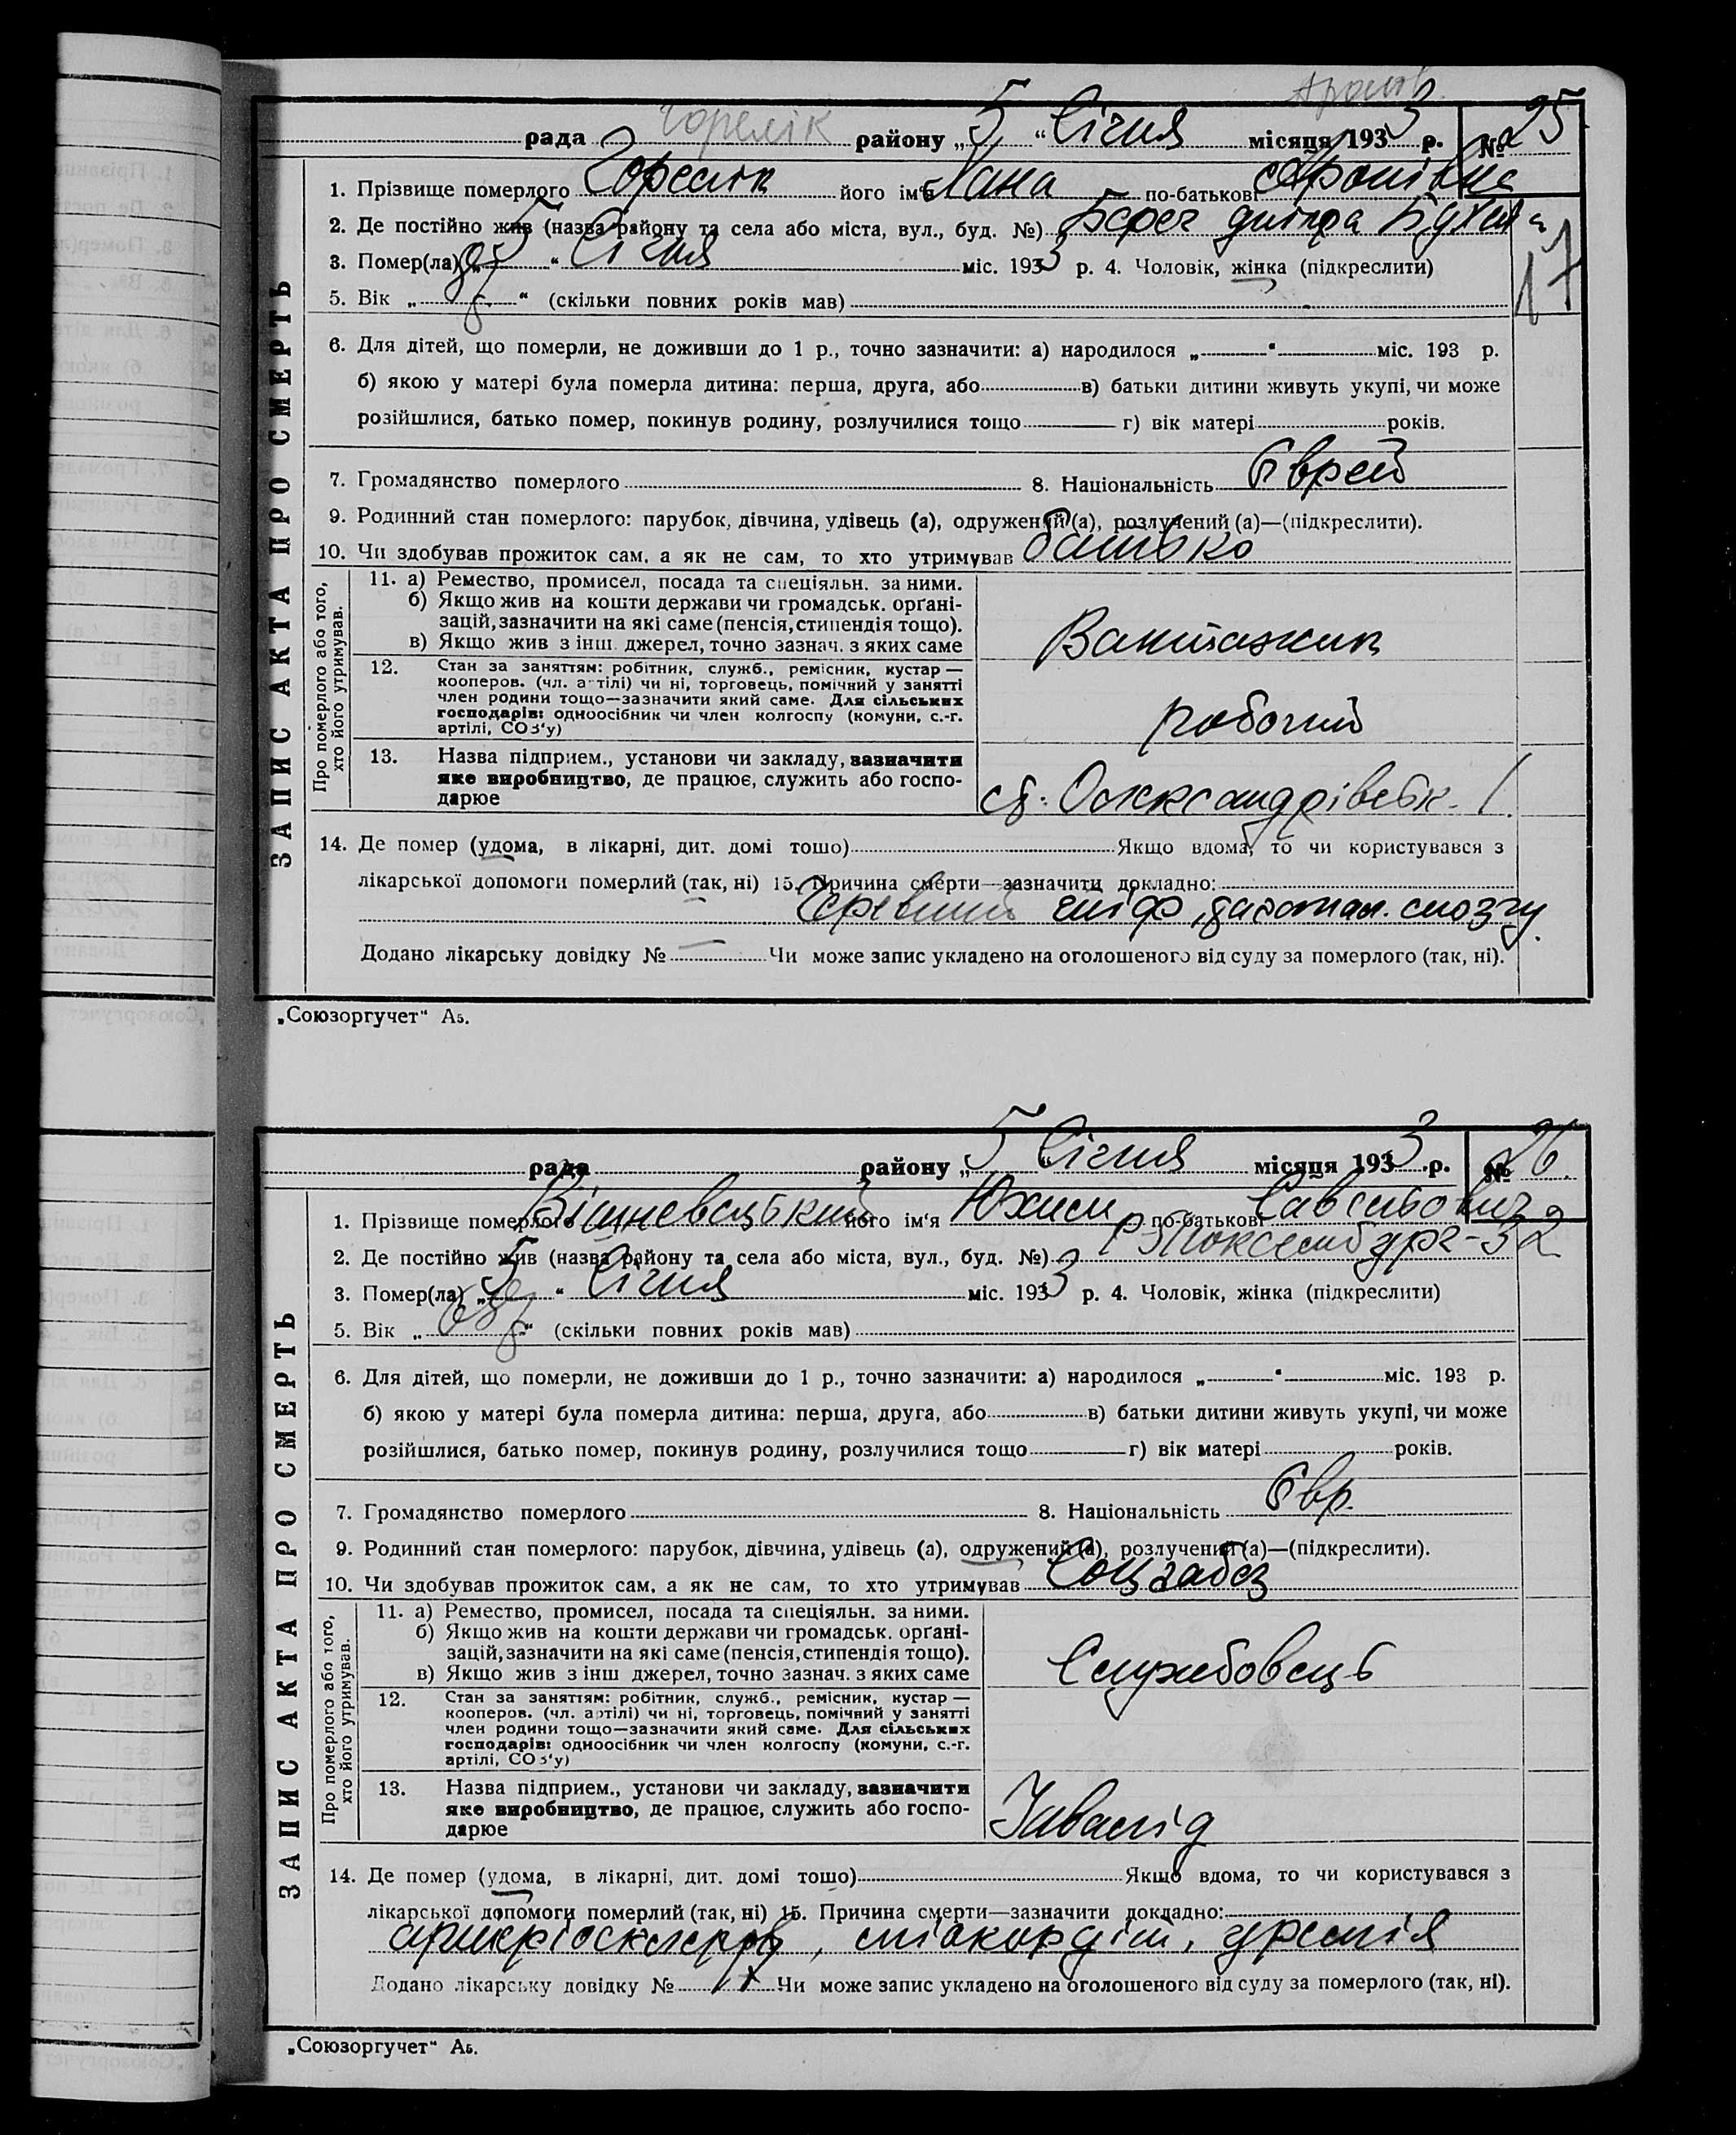 Горелік
рада Горелік району „5" Січня місяця 1933 р. № 25
1. Прізвище померлого Горелік його ім'я Хана по-батькові Аронівна
2. Де постійно жив (назва району та села або міста, вул., буд. №) Берег Дніпра
3. Помер(ла) „5" Січня міс. 1933 р. 4. Чоловік, жінка (підкреслити)
17
5. Вік „ " (скільки повних років мав)
6. Для дітей, що померли, не доживши до 1 р., точно зазначити: а) народилося „ " міс. 193 р.
б) якою у матері була померла дитина: перша, друга, або в) батьки дитини живуть укупі, чи може
розійшлися, батько помер, покинув родину, розлучилися тощо г) вік матері років.
7. Громадянство померлого 8. Національність Єврей
9. Родинний стан померлого: парубок, дівчина, удівець (а), одружений (а), розлучений (а)—(підкреслити).
10. Чи здобував прожиток сам, а як не сам, то хто утримував батько
ЗАПИС АКТА ПРО СМЕРТЬ
Про померлого або того, хто його утримував.
11. а) Ремество, промисел, посада та спеціяльн. за ними.
б) Якщо жив на кошти держави чи громадськ. орґані-
зацій, зазначити на які саме (пенсія, стипендія тощо).
в) Якщо жив з інш. джерел, точно зазнач. з яких саме
Вантажник
12. Стан за заняттям: робітник, служб., ремісник, кустар —
кооперов. (чл. артілі) чи ні, торговець, помічний у занятті
член родини тощо—зазначити який саме. Для сільських
господарів: одноосібник чи член колгоспу (комуни, с.-г.
артілі, СОЗ'у)
робочий
13. Назва підприєм., установи чи закладу, зазначити
яке виробництво, де працює, служить або госпо-
дарює
ст. Олександрівськ. 1
14. Де помер (удома, в лікарні, дит. домі тощо) Якщо вдома, то чи користувався з
лікарської допомоги померлий (так, ні) 15. Причина смерти—зазначити докладно:
Черевний тіф, мозгу
Додано лікарську довідку № — Чи може запис укладено на оголошеного від суду за померлого (так, ні).
„Союзоргучет" А5.
рада району „5" Січня місяця 1933 р. № 26.
1. Прізвище померлого Вішневецький його ім'я Юхим по-батькові Савельович
2. Де постійно жив (назва району та села або міста, вул., буд. №) Р. Люксембург-32
3. Помер(ла) „5" Січня міс. 1933 р. 4. Чоловік, жінка (підкреслити)
5. Вік „ " (скільки повних років мав)
6. Для дітей, що померли, не доживши до 1 р., точно зазначити: а) народилося „ " міс. 193 р.
б) якою у матері була померла дитина: перша, друга, або в) батьки дитини живуть укупі, чи може
розійшлися, батько помер, покинув родину, розлучилися тощо г) вік матері років.
7. Громадянство померлого 8. Національність Євр.
9. Родинний стан померлого: парубок, дівчина, удівець (а), одружений (а), розлучений (а)—(підкреслити).
10. Чи здобував прожиток сам, а як не сам, то хто утримував Соцзабез
ЗАПИС АКТА ПРО СМЕРТЬ
Про померлого або того, хто його утримував.
11. а) Ремество, промисел, посада та спеціяльн. за ними.
б) Якщо жив на кошти держави чи громадськ. орґані-
зацій, зазначити на які саме (пенсія, стипендія тощо).
в) Якщо жив з інш джерел, точно зазнач. з яких саме
Службовець
12. Стан за заняттям: робітник, служб., ремісник, кустар —
кооперов. (чл. артілі) чи ні, торговець, помічний у занятті
член родини тощо—зазначити який саме. Для сільських
господарів: одноосібник чи член колгоспу (комуни, с.-г.
артілі, СОЗ'у)
13. Назва підприєм., установи чи закладу, зазначити
яке виробництво, де працює, служить або госпо-
дарює
Інвалід
14. Де помер (удома, в лікарні, дит. домі тощо) Якщо вдома, то чи користувався з
лікарської допомоги померлий (так, ні) 15. Причина смерти—зазначити докладно:
артеріосклероз, міокардіт, уремія
Додано лікарську довідку № Чи може запис укладено на оголошеного від суду за померлого (так, ні).
„Союзоргучет" А5.